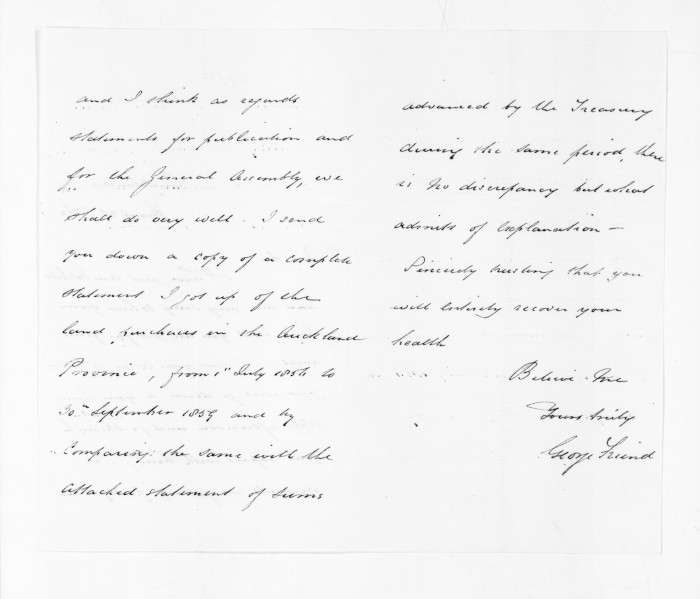 and I think as regards
statements for publication and
for the General Assembly, we
shall do very well. I send
you down a copy of a complete
statement I got up of the
land purchases in the Auckland
Province, from 1st July 1856 to
30th September 1859 and by
Comparing the same with the
attached statement of sums
advanced by the Treasury
during the same period, there
is no discrepancy but what
admits of Explanation —
Sincerely trusting that you
will entirely recover your
health
Believe me
Yours truly
George Friend